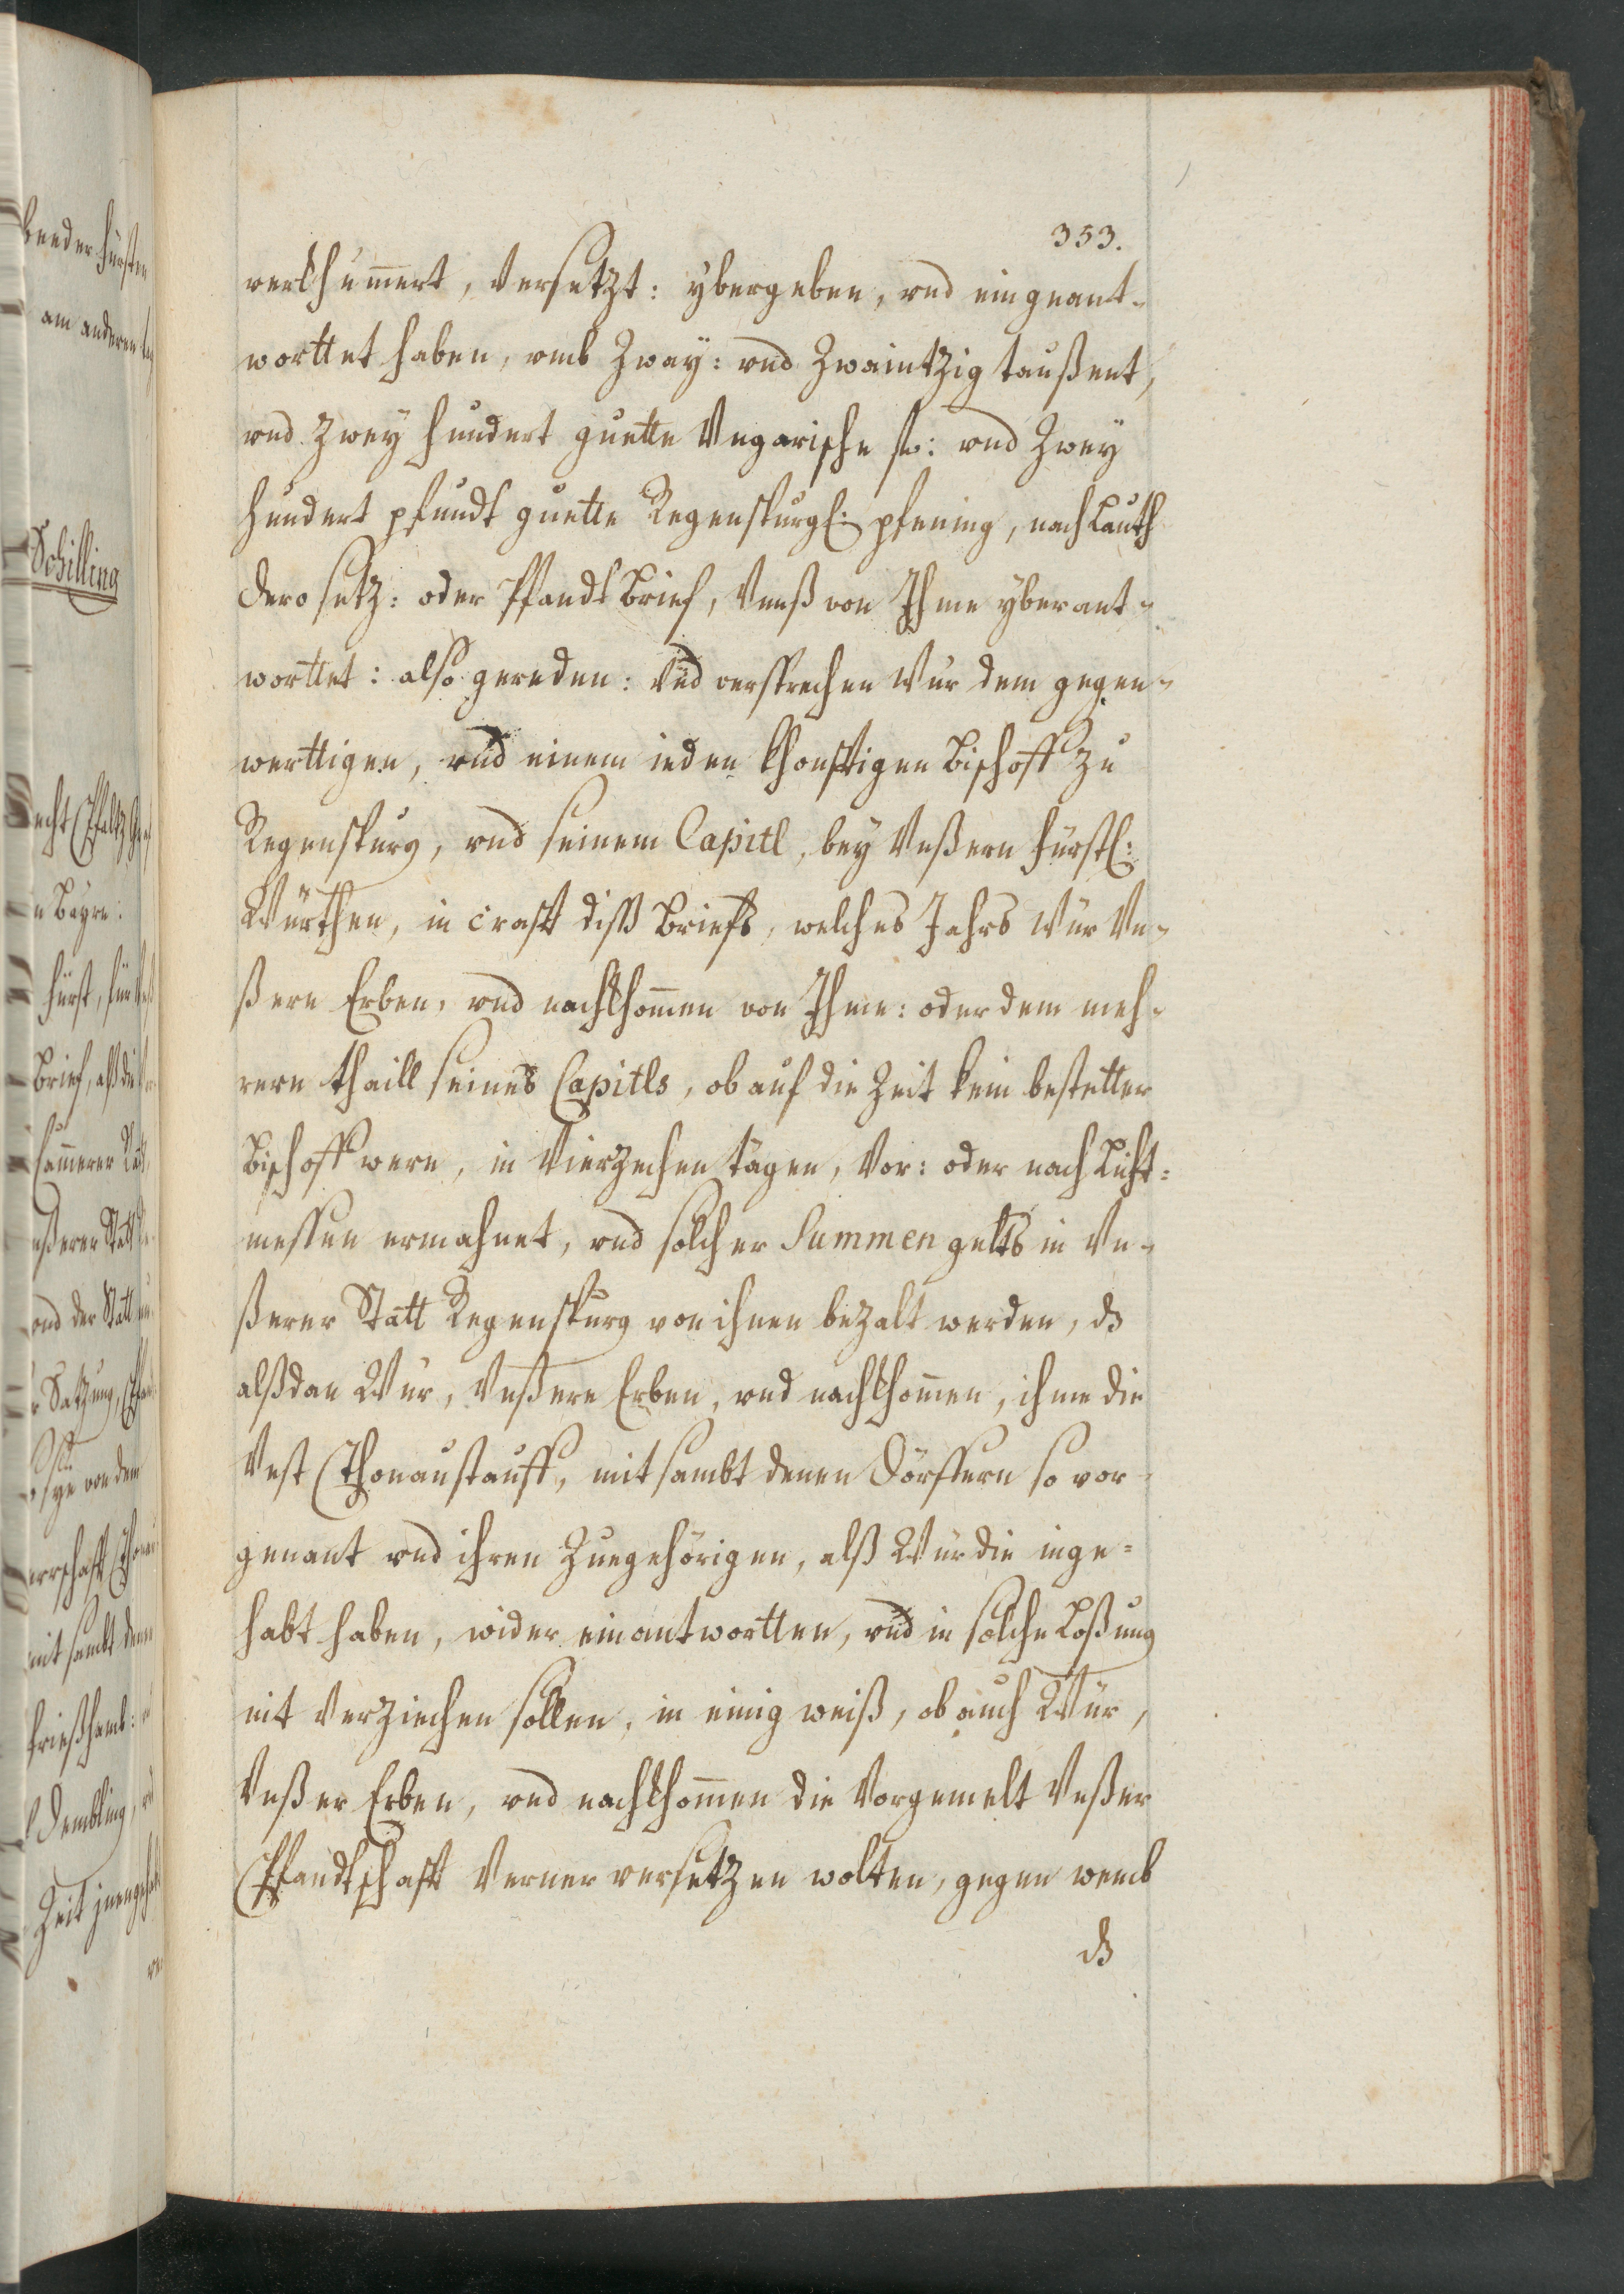 353.
verkhumert, versetzt: ybergeben, vnd eingeant-
worttet haben, vmb Zway: vnd Zwaintzig taußent,
vnd zwey hundert guette Vngarische fl: vnd Zwey
hundert pfundt guette Regenspurgl: pfening, nach Lauth
dero setz: oder Pfandt Brief, Vnß von Ihme yberant-
worttet: also gereden: Vnd versprechen Wür dem gegen-
werttigen, vnd einem ieden khonftigen Bischoff zu
Regenspurg, vnd seinem Capitl, bey Vnßern fürstl:
Würthen, in crafft diß Briefs, welches Jahrs Wür Vn-
ßern Erben, vnd nachkhomen von Ihme: oder dem meh-
rern thaill seines Capitls, ob auf die Zeit kein bestetter
Bischoff were, in Vierzechen tägen, Vor: oder nach Licht-
messen ermahnet, vnd solcher Summen gelts in Vn-
ßerer Statt Regenspurg von ihnen bezalt werden, ds
alßdan Wür, Vnßere Erben, vnd nachkhomen, ihme die
Vest Thonaustauff, mit sambt denen Dörffern so vor-
genant vnd ihren Zuegehörigen, alß Wür die inge-
habt haben, wider einantwortten, vnd in solche Loßung
nit Verziechen sollen, in einig weiß, ob auch Wür,
Vnßer Erben, vnd nachkhomen die Vorgemelt Vnßer
Pfandtschafft Verner versetzen wolten, gegen wemb
ds
beeder fürsten
am anderen
Schilling
n Bayrn:
fürst, für
Brief, alß die
Camerer
vnßerer Statt
vnd der Statt
Satzung,
sye von dem
mit sambt denen
Dembling,
Zeit